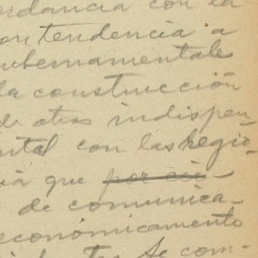 erdancia con la
con tendencia a
ubernamentales
la construcción
de otras indispen-
ental con las Regio-
ia que por ci-
de comunica-
económicamente
Se com-